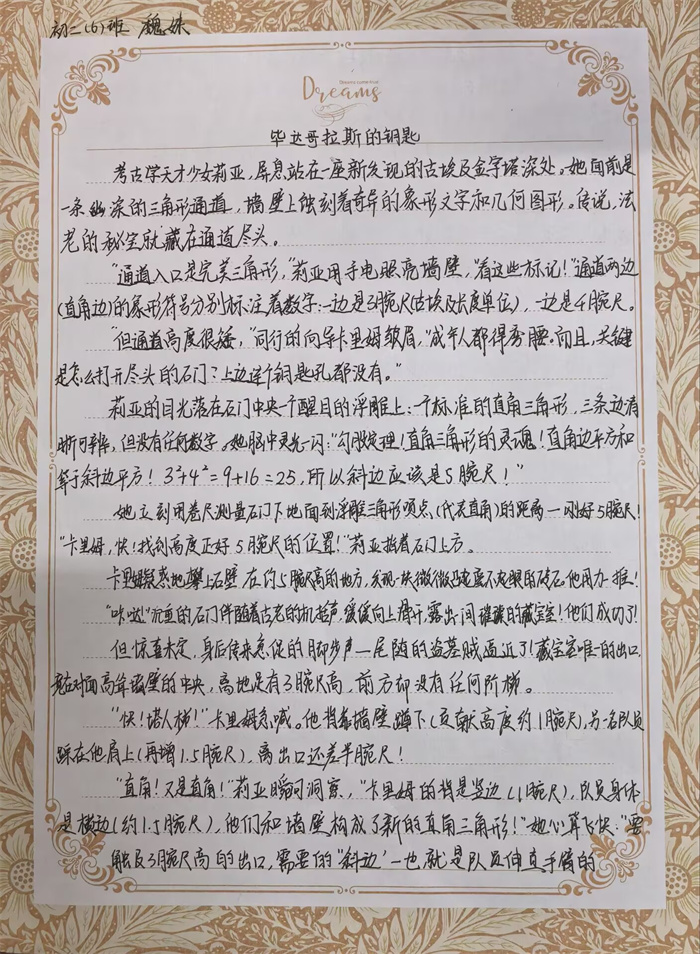 初二(6)班 魏妹
Dreams
毕达哥拉斯的钥匙
考古学天才少女莉亚，屏息站在一座新发现的古埃及金字塔深处。她面前是
一条幽深的三角形通道，墙壁上蚀刻着奇异的象形文字和几何图形。传说，法
老的秘宝就藏在通道尽头。
"通道入口是完美三角形，"莉亚用手电照亮墙壁，"看这些标记！"通道两边
(直角边)的象形符号分别标注着数字:一边是3腕尺(古埃及长度单位)，一边是4腕尺。
"但通道高度很矮，"同行的向导卡里姆皱眉，"成年人都得弯腰。而且，关键
是怎么打开尽头的石门？上边连个钥匙孔都没有。"
莉亚的目光落在石门中央一个醒目的浮雕上:一个标准的直角三角形，三条边清
晰可辨，但没有任何数字。她脑中灵光一闪:"勾股定理！直角三角形的灵魂！直角边平方和
等于斜边平方！3²+4²=9+16=25，所以斜边应该是5腕尺！"
她立刻用卷尺测量石门下地面到浮雕三角形顶点(代表直角)的距离—刚好5腕尺！
"卡里姆，快！找到高度正好5腕尺的位置！"莉亚指着石门上方。
卡里姆疑惑地攀上石壁，在约5腕尺高的地方，发现一块微微凸起毫不起眼的砖石。他用力一推！
"咔哒"沉重的石门伴随着古老的机括声，缓缓向上滑开，露出一间璀璨的藏宝室！他们成功了！
但惊喜未定，身后传来急促的脚步声—尾随的盗墓贼逼近了！藏宝室唯一的出口，
竟在对面高耸石壁的中央，离地足有3腕尺高，前方却没有任何阶梯。
"快！搭人梯！"卡里姆急喊。他背靠墙壁蹲下(贡献高度约1腕尺)，另一名队员
踩在他肩上(再增1.5腕尺)，离出口还差半腕尺！
"直角！又是直角！"莉亚瞬间洞察，"卡里姆的背是竖边(1腕尺)，队员身体
是横边(约1.5腕尺)，他们和墙壁构成了新的直角三角形！"她心算飞快:"要
触及3腕尺高的出口，需要的"斜边'—也就是队员伸直手臂的